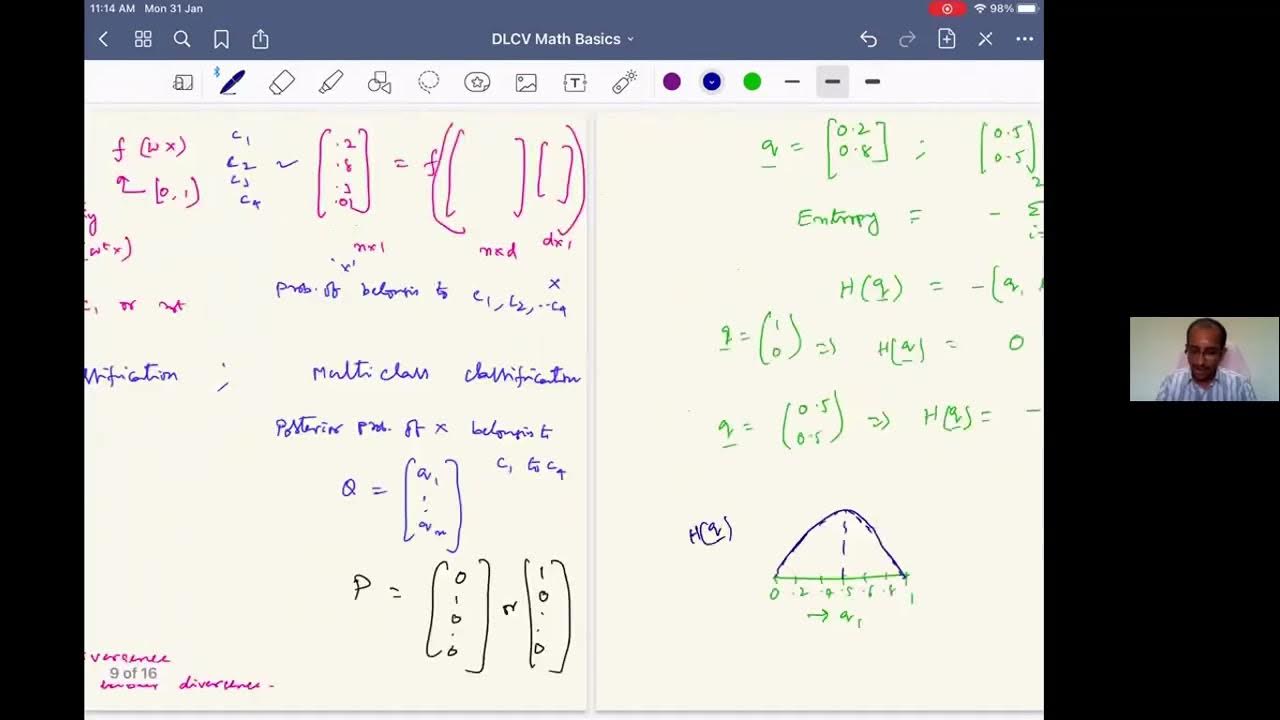 11:14 AM Mon 31 Jan
98%
DLCV Math Basics
f (W x)
[0, 1]
c1
c2
c3
c4
~ [.2 .8 .3 .01] = f( [ ] [ ] )
n×1
n×d
d×1
(wᵗx)
'x'
Prob. of belongin to c1, c2, ..c4
x
c1 or not
ssification ; Multiclass classification
Posterior prob. of x belongin to
c1 to c4
Q = [q1 : qn]
P = [0 1 0 . 0] or [1 0 . . 0]
vergence
divergence.
9 of 16
q = [0.2 0.8] ; [0.5 0.5]
Entropy = - Σ
2
i=
H(q) = -(q1
q = (1 0) ⇒ H(q) = 0
q = (0.5 0.5) ⇒ H(q) = -
H(q)
0 .2 .4 .5 .6 .8 1
→ q1